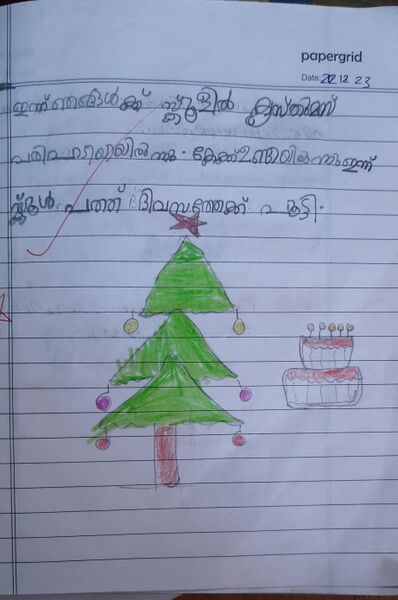 papergrid
Date: 22.12.23
ഇന്ന് ഞങ്ങൾക്ക് സ്കൂളിൽ ക്രിസ്തുമസ്
പരിപാടിയായിരുന്നു. കേക്ക് ഉണ്ടായിരുന്നു ഇന്ന്
സ്കൂൾ പത്ത് ദിവസത്തേക്ക് പൂട്ടി.